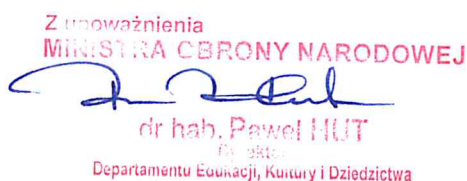 Z upoważnienia
MINISTRA OBRONY NARODOWEJ
dr hab. Paweł HUT
Dyrektor
Departamentu Edukacji, Kultury i Dziedzictwa